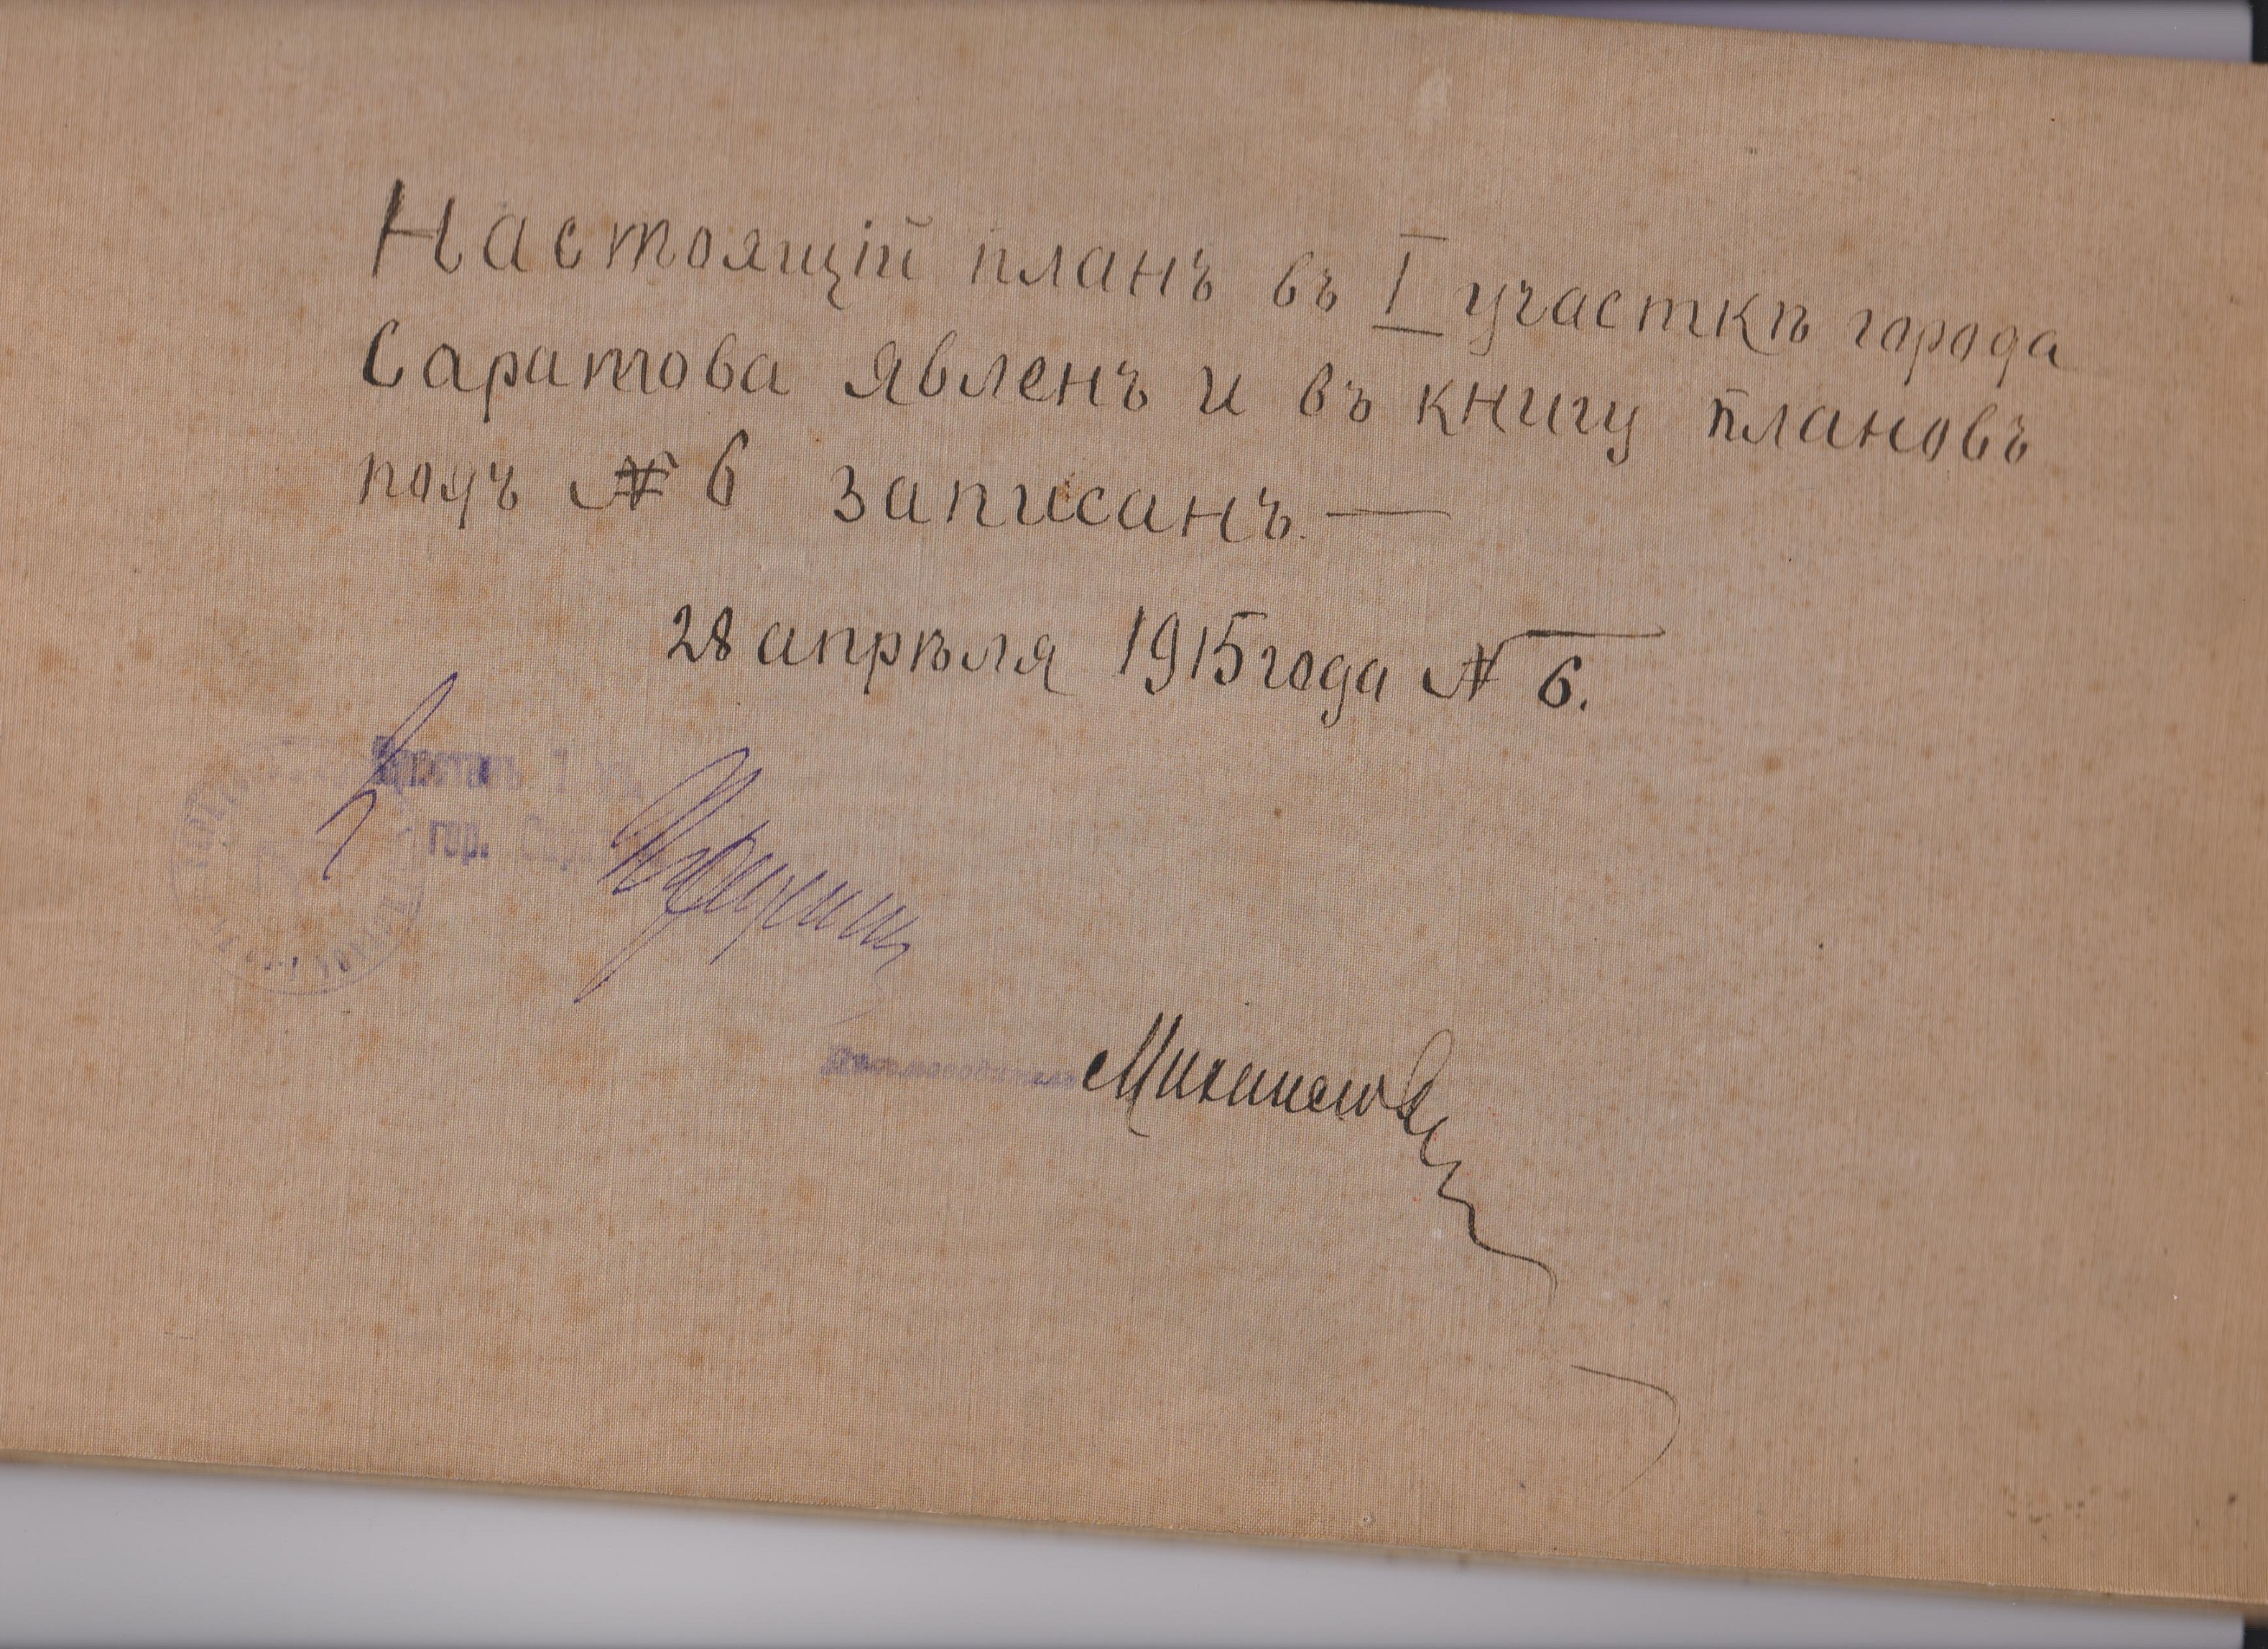 Настоящій планъ въ I участкѣ города
Саратова явленъ и въ книгу плановъ
подъ № 6 записанъ. —
28 апрѣля 1915 года № 6.
Приставъ 1
гор.
Письмоводитель